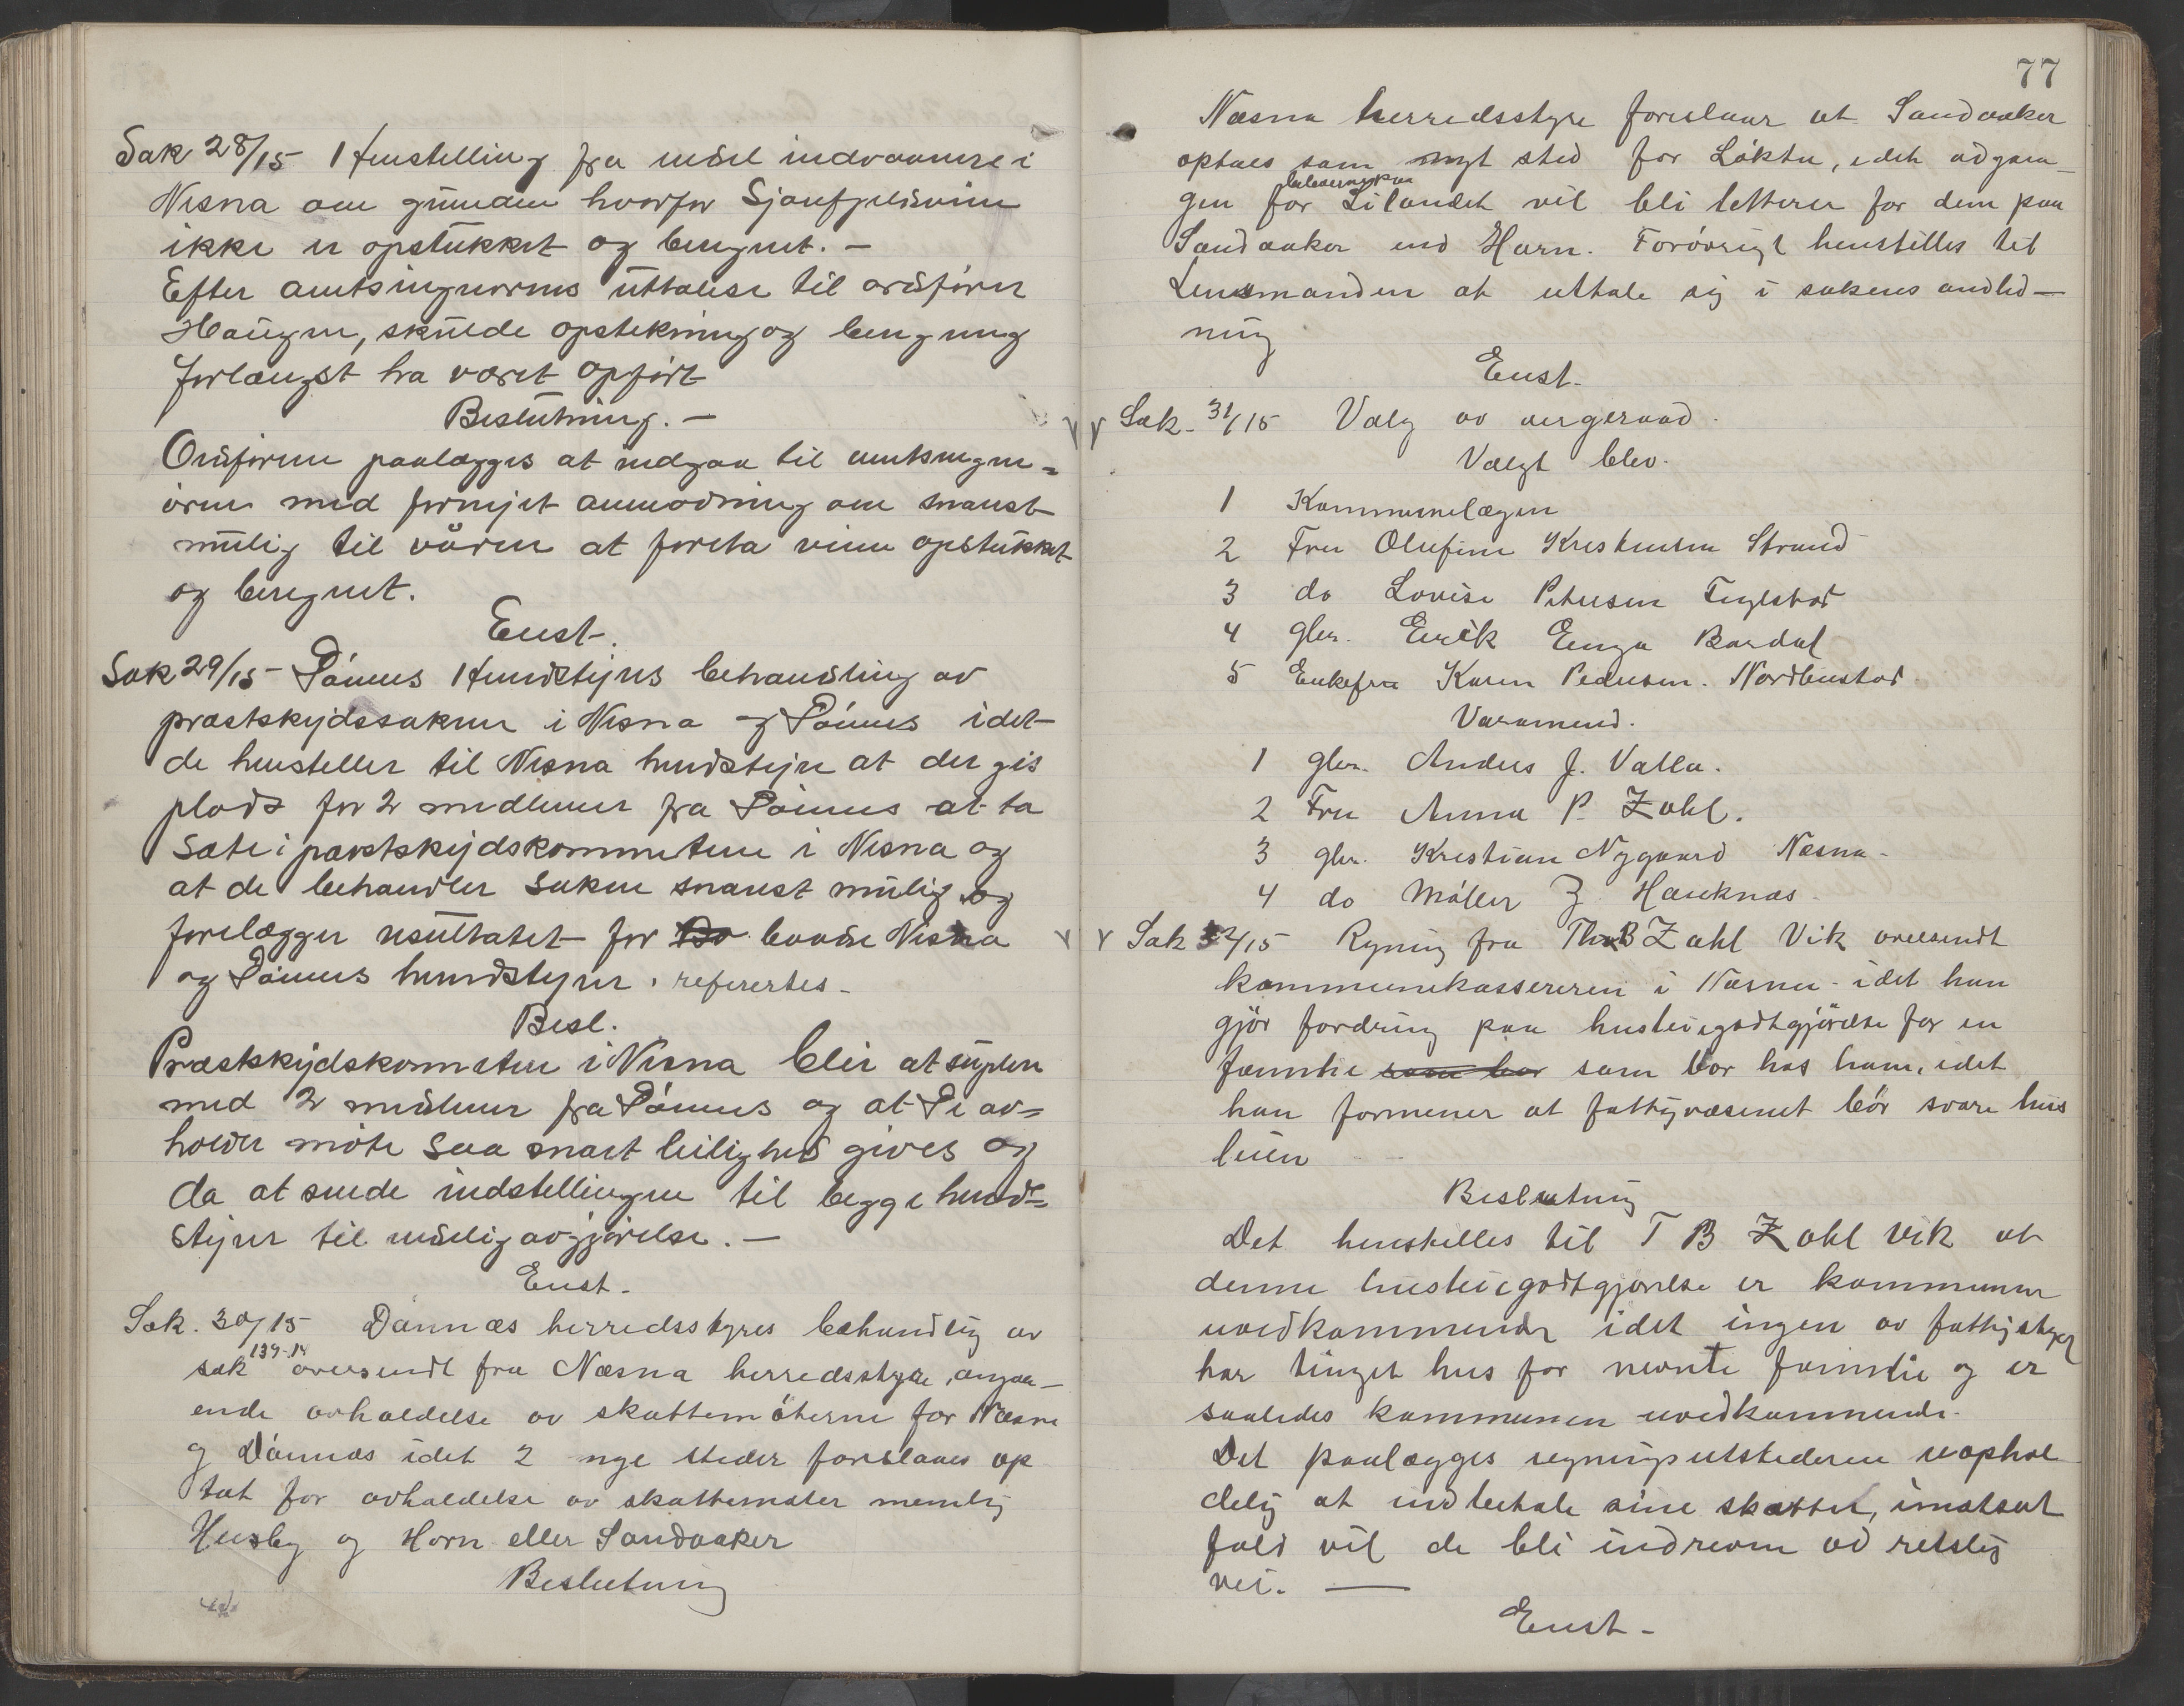 Sak 28/15 Henstilling fra indvaanere i
Nesna om grunden hvorfor Sjonfjeldsveien
ikke er opstukket og beregnet. –
Efter amtsingniørens uttalelse til ordfører
Haugen, skulde opstekning og beregning
forlængst ha været opført
Beslutning. –
Ordføreren paalægges at indgaa til amtsingni=
øren med fornyet anmodning om snarest
mulig til våren at foreta veien opstukket
og beregnet.
Enst.
Sak 29/15 Dønnes Herredstyres behandling av
præstskydssaken i Nesna og Dønnes idet
de henstiller til Nesna herredstyre at der gis
plads for 2 medlemer fra Dønnes at ta
sæte i præstskydskommiteen i Nesna og
at de behandler saken snarest mulig og
forelægger resultatet for baade Nesna
og Dønnes herredstyrer. refertes –
Besl.
Præstskydskomiteen i Nesna blir at suplere
med 2 medlemer fra Dønnes og at De av=
holder møte saa snart leilighed gives og
da at sende indstillingen til begge herred=
styrer til endelig avgjørelse. –
Enst.
Sak. 30/15 Dønnæs herredsstyres behandlig av
sak 139-14 oversendt fra Næsna herredsstyre, angaa–
ende avholdelse av skattemøterne for Næsna
og Dønnæs idet 2 nye steder foreslaaes op
tat for avholdelse av skattemøter nemlig
Husby og Horn eller Sandaaker
Beslutning
77
Næsna herredsstyre foreslaar at Sandaaker
optaes som nyt sted for Løkta, idet adgan
gen for beboerne paa Lilandet vil bli lettere for dem paa
Sandaaker end Horn. Forøvrigt henstilles til
Lensmanden at uttale sig i sakens anled–
ning
Enst.
Sak. 31/15 Valg av vergeraad.
Valgt blev.
1 Kommunelægen
2 Fru Olufine Kristensen Strand
3 do Lovise Petersen Fuglstad
4 gbr. Eerik Enga Bardal
5 Enkefru Karen Pedersen. Nordbustad.
Varamend.
1 gbr. Anders J. Valla.
2 Fru Anna P. Zahl.
3 gbr. Kristian Nygaard Næsna–
4 do Møller Z Hæuknæs
Sak 32/15 Regning fra Thv B Zahl Vik oversendt
kommunekassereren i Næsna – idet han
gjør fordring paa husleiegodtgjørelse for en
familie som bor som bor hos ham, idet
han formener at fattigvæsenet bør svare hus
leien
Beslutning
Det henstilles til T B Zahl Vik at
denne husleiegodtgjørelse er kommunen
uvedkommende idet ingen av fattigstyret
har tinget hus for nevnte familie og er
saaledes kommunen uvedkommende.
Det paalægges regningsutstederen uophol
delig at indbetale sine skatter, imotsat
fald vil de bli indreven ad retslig
vei. —
Enst –